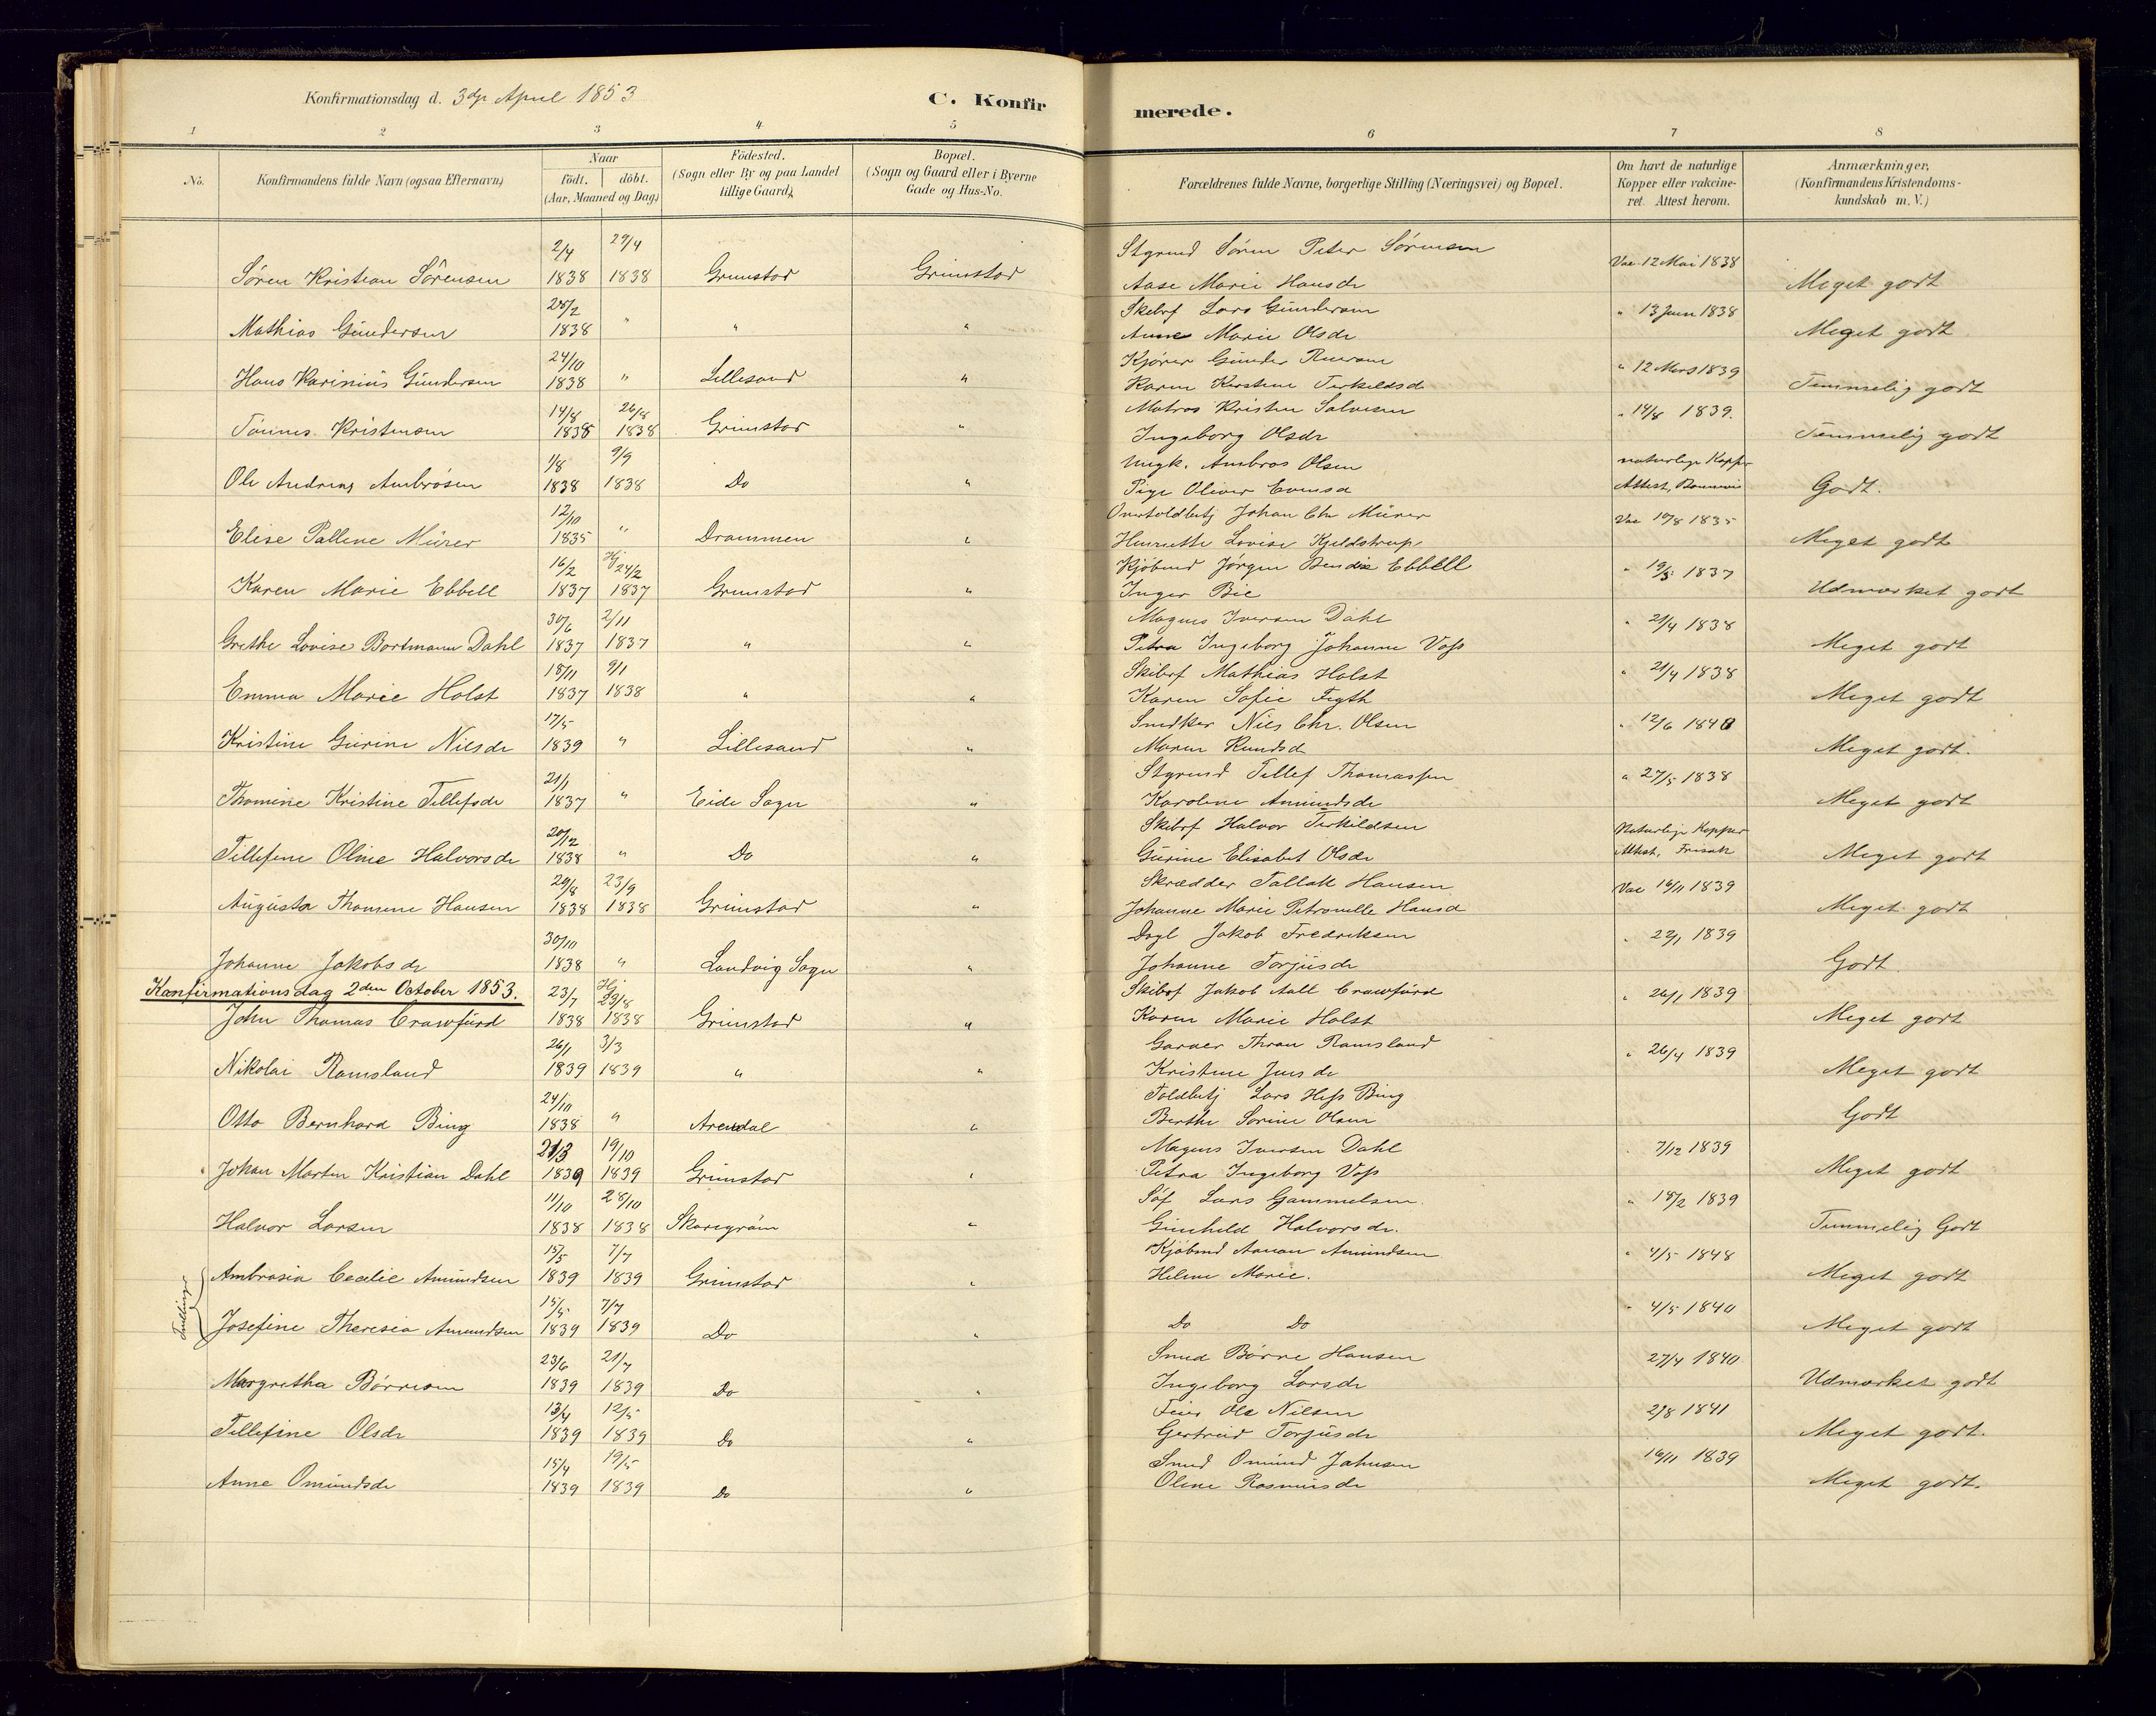 Konfirmationsdag d. 3die April 1853
C. Konfirmerede.
1 2 3 4 5 6 7 8
No.
Konfirmandens fulde Navn (ogsaa Efternavn)
Naar
födt. | döbt.
(Aar, Maaned og Dag)
Födested.
(Sogn eller By og paa Landet
tillige Gaard)
Bopæl.
(Sogn og Gaard eller i Byerne
Gade og Hus-No.
Forældrenes fulde Navne, borgerlige Stilling (Næringsvei) og Bopæl.
Om havt de naturlige
Kopper eller vakcine-
ret. Attest herom.
Anmærkninger,
(Konfirmandens Kristendoms-
kundskab m. V.)
2/4 29/4 Styrmd Sören Peter Sörensen Vac 12 Mai 1838
Sören Kristian Sörensen 1838 1838 Grimstad Grimstad Aase Marie Hansdr Meget godt
28/2 Skibsf Lars Gundersen " 13 Juni 1838
Mathias Gundersen 1838 " " " Anne Marie Olsdr Meget godt
24/10 Kjörer Gunder " 12 Mars 1839
Hans Karinius Gundersen 1838 " Lillesand " Karen Kirstine Terkildsd Temmelig godt
14/8 26/8 Matros Kristen Salvesen " 14/8 1839.
Tönnes Kristensen 1838 1838 Grimstad " Ingeborg Olsdr Temmelig godt
1/8 9/9 Ungk. Ambros Olsen naturlige Kopper
Ole Andreas Ambrosen 1838 1838 Do " Pige Oliver Evensd Attest, Godt.
12/10 Overtoldbetj Johan Chr Mürer Vac 10/8 1835
Elise Palline Mürer 1835 " Drammen " Henriette Lovise Kjeldstrup Meget godt
16/2 Hj 24/2 Kjöbmd Jörgen Bendix Ebbell " 19/5 1837
Karen Marie Ebbell 1837 1837 Grimstad " Inger Bie Udmærket godt
30/6 2/11 Magnus Iversen Dahl " 21/4 1838
Grethe Lovise Bortmann Dahl 1837 1837 " " Petra Ingeborg Johanne Voss Meget godt
18/11 9/1 Skibsf Mathias Holst " 21/4 1838
Emma Marie Holst 1837 1838 " " Karen Sofie Fegth Meget godt
17/5 Snedker Niels Chr. Olsen " 12/6 1840
Kristine Gurine Nilsdr 1839 " Lillesand " Maren Knudsd Meget godt.
21/1 Styrmd Tellef Thomassen " 27/5 1838
Thomine Kristine Tellefsdr 1837 " Eide Sogn " Karoline Amundsdr Meget godt
20/12 Skibsf Halvor Terkildsen Naturlige Kopper
Tellefine Oline Halvorsdr 1838 " Do " Gurine Elisabet Olsdr Attest, Frisak Meget godt
29/8 23/9 Skrædder Tallak Hansen Vac 16/11 1839
Augusta Thomine Hansen 1838 1838 Grimstad " Johanne Marie Petronelle Hansd Meget godt
30/10 Dagl Jakob Fredriksen " 22/1 1839
Johanne Jakobsdr 1838 " Landvig Sogn " Johanne Torjusdr Godt.
Konfirmationsdag 2den October 1853.
23/7 Hj 29/8 Skibsf Jakob Aall Crawfurd " 26/1 1839
John Thomas Crawfurd 1838 1838 Grimstad " Karen Marie Holst Meget godt
26/1 3/3 Garver Thran Ramsland " 26/4 1839
Nikolai Ramsland 1839 1839 " " Kristine Jensdr Meget godt
24/10 Toldbetj Lars Hess Bing
Otto Bernhard Bing 1838 " Arendal " Berthe Sorine Olsen Godt
21/3 19/10 Magnus Iversen Dahl " 7/12 1839
Johan Morten Kristian Dahl 1839 1839 Grimstad " Petra Ingeborg Voss Meget godt
11/10 28/10 Söf Lars Gammelsen " 18/2 1839
Halvor Larsen 1838 1838 " Gunhild Halvorsdr. Temmelig Godt
15/5 7/7 Kjöbmd Aanon Amundsen " 4/5 1848
Ambrosia Cecilie Amundsen 1839 1839 Grimstad " Helene Marie. Meget godt
Tvillinger
15/5 7/7 " 4/5 1840
Josefine Theresia Amundsen 1839 1839 Do " Do Do Meget godt
23/6 21/7 Smed Börre Hansen 27/4 1840
Margretha Börresen 1839 1839 Do " Ingeborg Larsdr Udmærket godt
13/4 12/5 Feier Ole Nilsen 2/8 1841
Tellefine Olsdr 1839 1839 Do " Gertrud Torjusdr Meget godt.
15/4 19/5 Smed Omund Jahnsen 16/11 1839
Anne Omundsdr 1839 1839 Do " Oline Rasmusdr Meget godt.